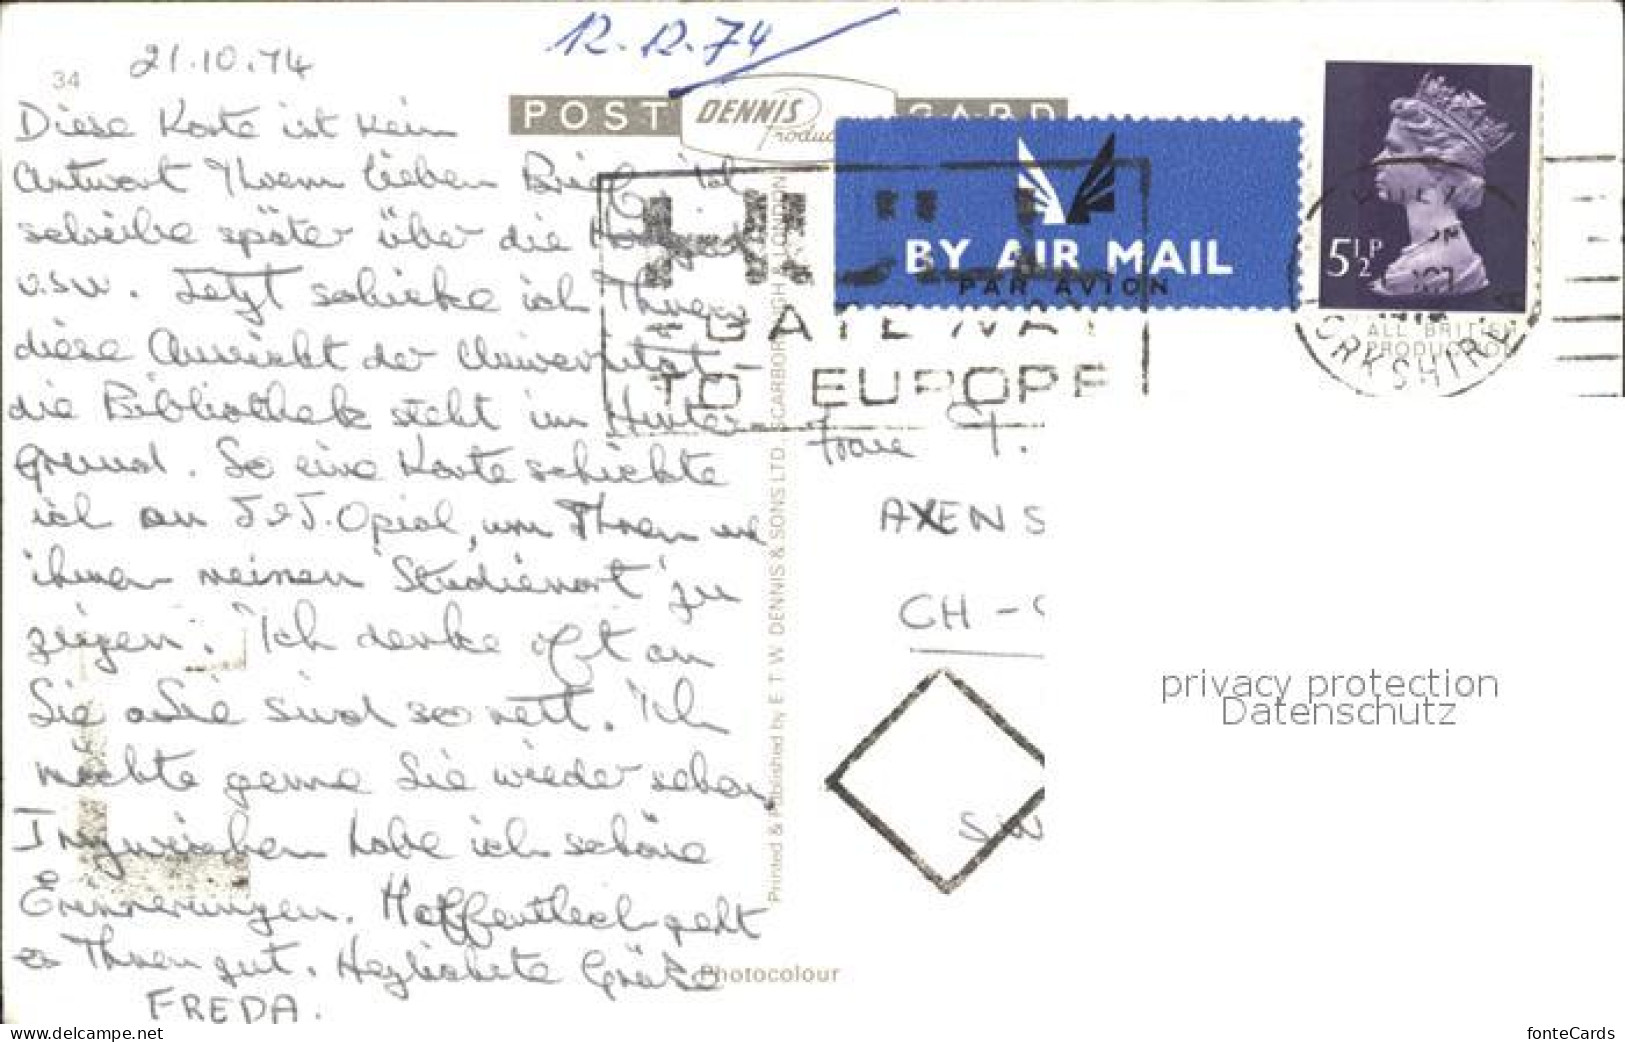 34
21.10.74
12.12.74
POST CARD
DENNIS
Produc
BY AIR MAIL
PAR AVION
5½P
ALL BRITISH
PRODUCTION
ORKSHIRE
HULL
GATEWAY
TO EUROPE
Diese Karte ist kein
Antwort Ihrem lieben Brief, ich
schreibe später über die
u.s.w. Jetzt schicke ich Ihnen
diese Ansicht der Universität -
die Bibliothek steht im Hinter-
grund. So eine Karte schickte
ich an J & J. Opiol, um Ihnen und
ihnen meinen 'Studienort' zu
zeigen. Ich denke oft an
Sie Sie sind so nett. Ich
möchte gerne Sie wieder sehen.
Inzwischen habe ich schöne
Erinnerungen. Hoffentlich geht
es Ihnen gut. Herzlichste Grüße
FREDA.
Frau T.
AXENS
CH -
Printed & Published by E. T. W. DENNIS & SONS LTD., SCARBOROUGH & LONDON
Photocolour
privacy protection
Datenschutz
www.delcampe.net
fonteCards